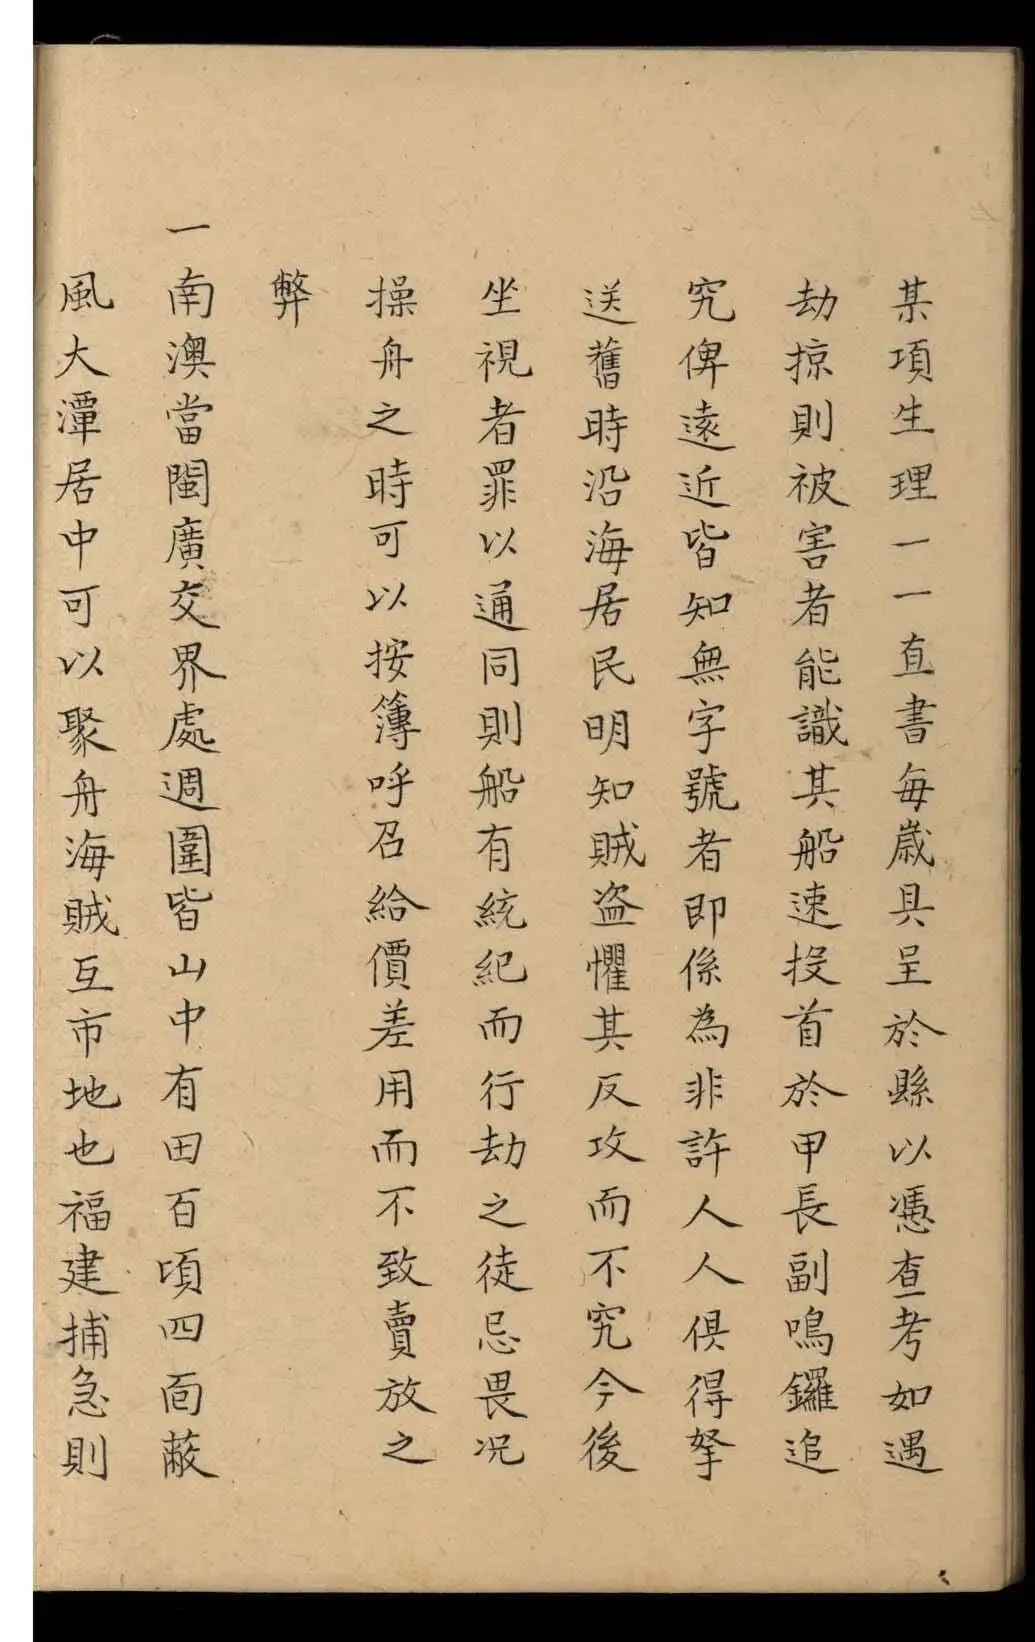 某項生理一一直書每歲具呈於縣以憑查考如遇
劫掠則被害者能識其船速投首於甲長副鳴鑼追
究俾遠近皆知無字號者即係為非許人人俱得拏
送舊時沿海居民明知賊盜懼其反攻而不究今後
坐視者罪以通同則船有統紀而行劫之徒忌畏况
操舟之時可以按簿呼召給價差用而不致賣放之
弊
一南澳當閩廣交界處週圍皆山中有田百頃四面蔽
風大潭居中可以聚舟海賊互市地也福建捕急則